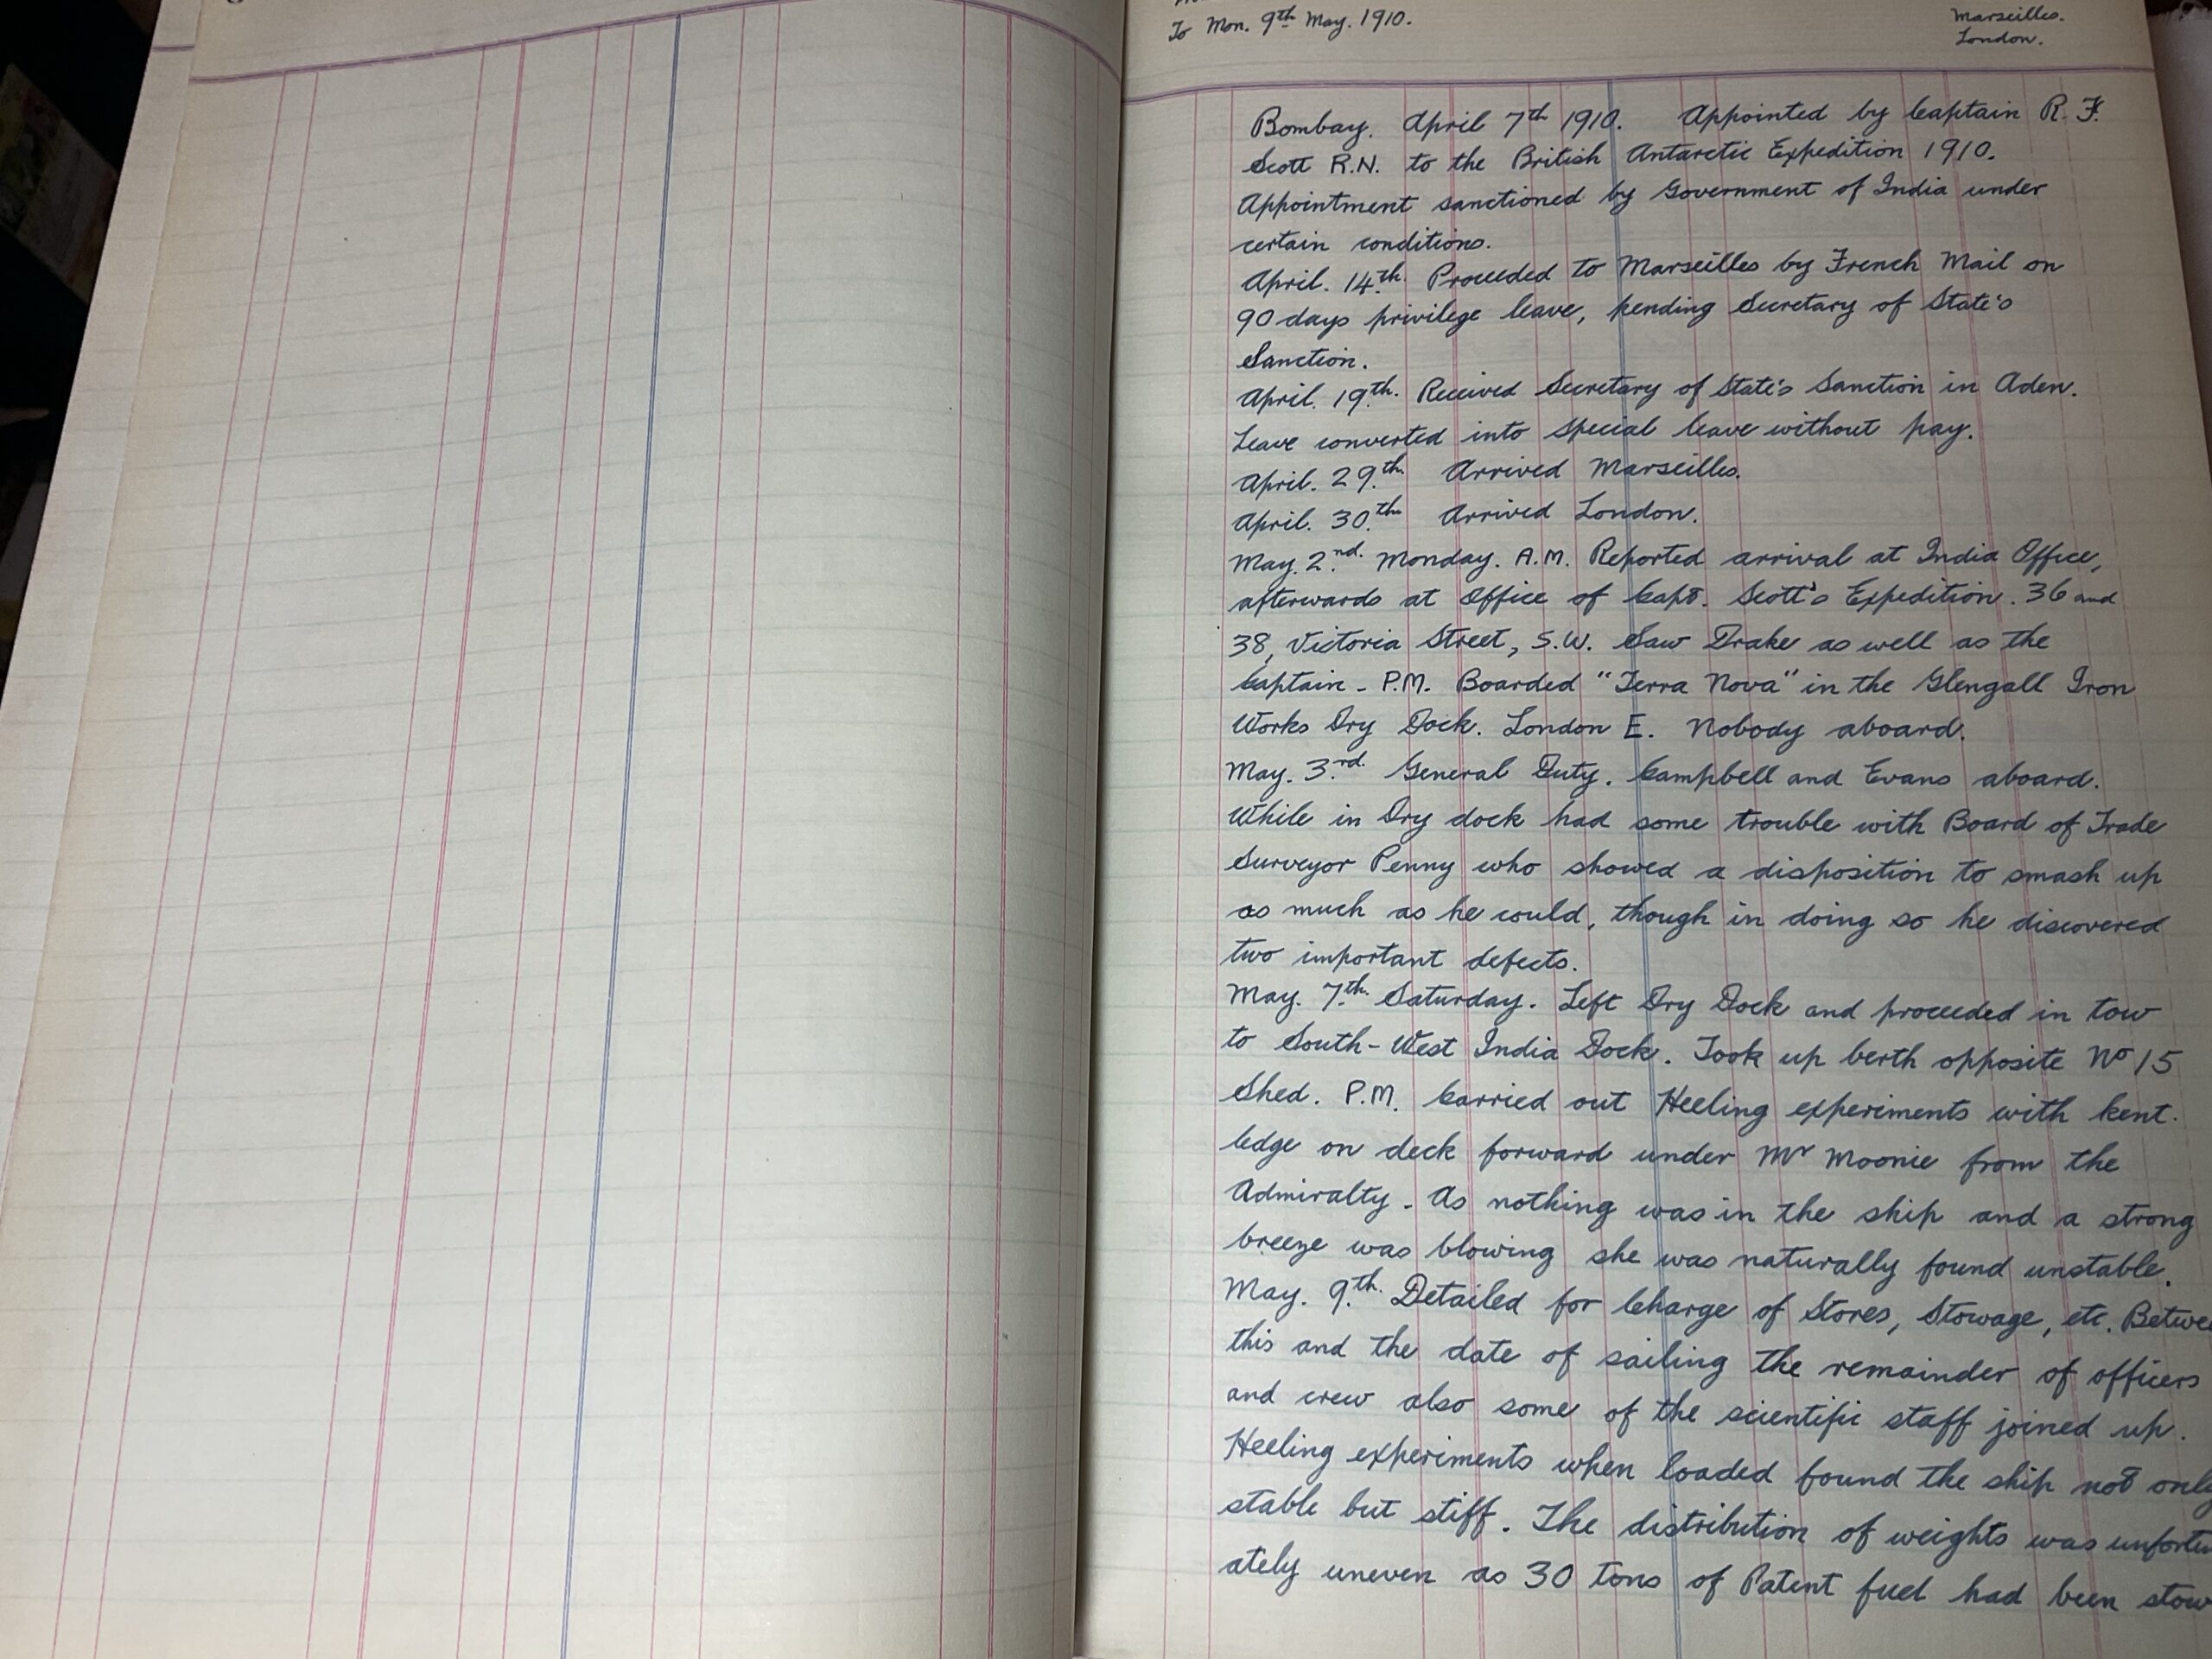 To Mon. 9th May. 1910.
Marseilles.
London.
Bombay. April 7th 1910. Appointed by Captain R. F.
Scott R.N. to the British Antarctic Expedition 1910.
Appointment sanctioned by Government of India under
certain conditions.
April. 14th. Proceeded to Marseilles by French Mail on
90 days privilege leave, pending Secretary of State's
Sanction.
April. 19th. Received Secretary of State's Sanction in Aden.
Leave converted into special leave without pay.
April. 29th. Arrived Marseilles.
April. 30th. Arrived London.
May. 2nd. Monday. A.M. Reported arrival at India Office,
afterwards at Office of Capt. Scott's Expedition. 36 and
38, Victoria Street, S.W. Saw Drake as well as the
Captain - P.M. Boarded "Terra Nova" in the Glengall Iron
Works Dry Dock. London E. Nobody aboard.
May. 3rd. General Duty. Campbell and Evans aboard.
While in Dry dock had some trouble with Board of Trade
Surveyor Penny who showed a disposition to smash up
as much as he could, though in doing so he discovered
two important defects.
May. 7th. Saturday. Left Dry Dock and proceeded in tow
to South-West India Dock. Took up berth opposite No 15
Shed. P.M. Carried out Heeling experiments with kent-
ledge on deck forward under Mr Moonie from the
Admiralty - As nothing was in the ship and a strong
breeze was blowing she was naturally found unstable.
May. 9th. Detailed for Charge of Stores, Stowage, etc. Betwee
this and the date of sailing the remainder of officers
and crew also some of the scientific staff joined up.
Heeling experiments when loaded found the ship not only
stable but stiff. The distribution of weights was unfortu
ately uneven as 30 tons of Patent fuel had been stow